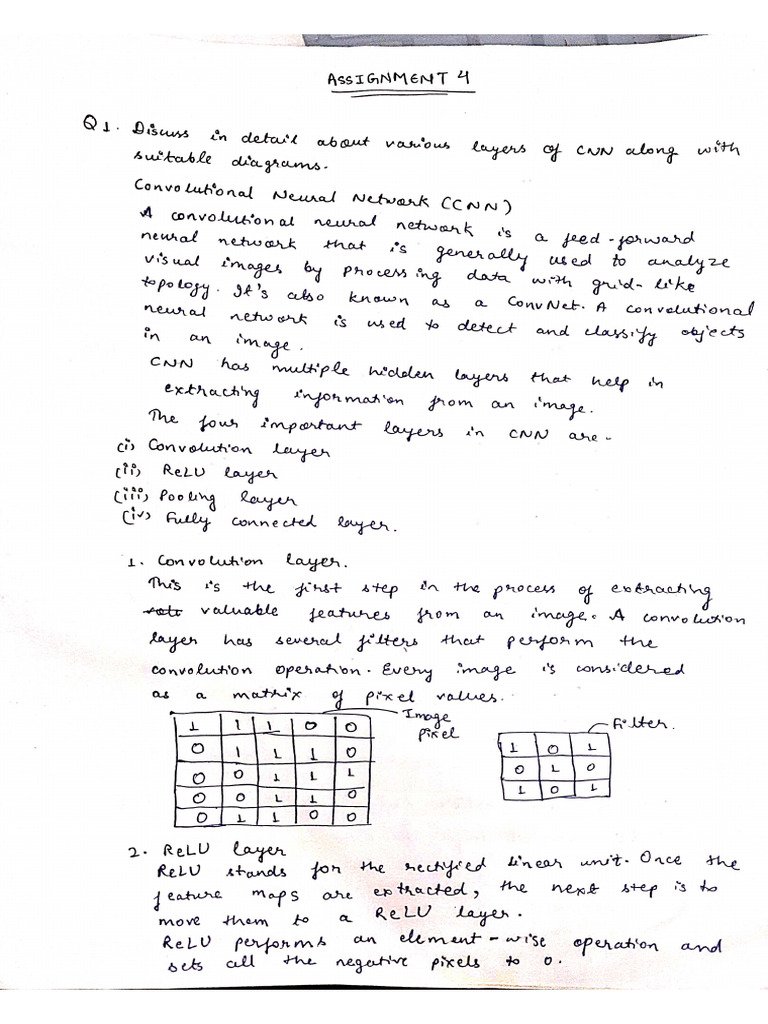 ASSIGNMENT 4
Q1. Discuss in detail about various layers of CNN along with
suitable diagrams.
Convolutional Neural Network (CNN)
A convolutional neural network is a feed-forward
neural network that is generally used to analyze
visual images by processing data with grid-like
topology. It's also known as a ConvNet. A convolutional
neural network is used to detect and classify objects
in an image.
CNN has multiple hidden layers that help in
extracting information from an image.
The four important layers in CNN are-
(i) Convolution layer
(ii) ReLU layer
(iii) Pooling layer
(iv) Fully connected layer.
1. Convolution layer.
This is the first step in the process of extracting
valuable features from an image. A convolution
layer has several filters that perform the
convolution operation. Every image is considered
as a matrix of pixel values.
Image
pixel
Filter.
1 1 1 0 0
0 1 1 1 0
0 0 1 1 1
0 0 1 1 0
0 1 1 0 0
1 0 1
0 1 0
1 0 1
2. ReLU layer
ReLU stands for the rectified linear unit. Once the
feature maps are extracted, the next step is to
move them to a ReLU layer.
ReLU performs an element-wise operation and
sets all the negative pixels to 0.